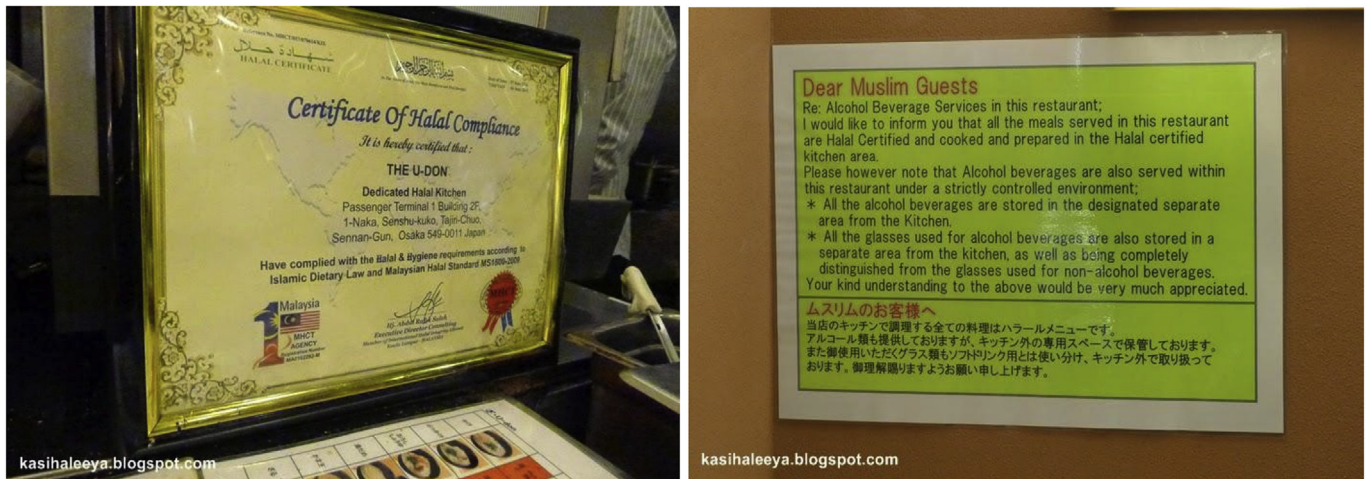 شهادة حلال
HALAL CERTIFICATE
Certificate Of Halal Compliance
It is hereby certified that :
THE U-DON
Dedicated Halal Kitchen
Passenger Terminal 1 Building 2F,
1-Naka, Senshu-kuko, Tajiri-Chuo,
Sennan-Gun, Osaka 549-0011 Japan
Have complied with the Halal & Hygiene requirements according to
Islamic Dietary Law and Malaysian Halal Standard MS1500-2009
1
Malaysia
MHCT
AGENCY
Registration Number
Executive Director Consulting
MHCT
kasihaleeya.blogspot.com
Dear Muslim Guests
Re: Alcohol Beverage Services in this restaurant;
I would like to inform you that all the meals served in this restaurant
are Halal Certified and cooked and prepared in the Halal certified
kitchen area.
Please however note that Alcohol beverages are also served within
this restaurant under a strictly controlled environment;
* All the alcohol beverages are stored in the designated separate
area from the Kitchen.
* All the glasses used for alcohol beverages are also stored in a
separate area from the kitchen, as well as being completely
distinguished from the glasses used for non-alcohol beverages.
Your kind understanding to the above would be very much appreciated.
ムスリムのお客様へ
当店のキッチンで調理する全ての料理はハラールメニューです。
アルコール類も提供しておりますが、キッチン外の専用スペースで保管しております。
また御使用いただくグラス類もソフトドリンク用とは使い分け、キッチン外で取り扱って
おります。御理解賜りますようお願い申し上げます。
kasihaleeya.blogspot.com